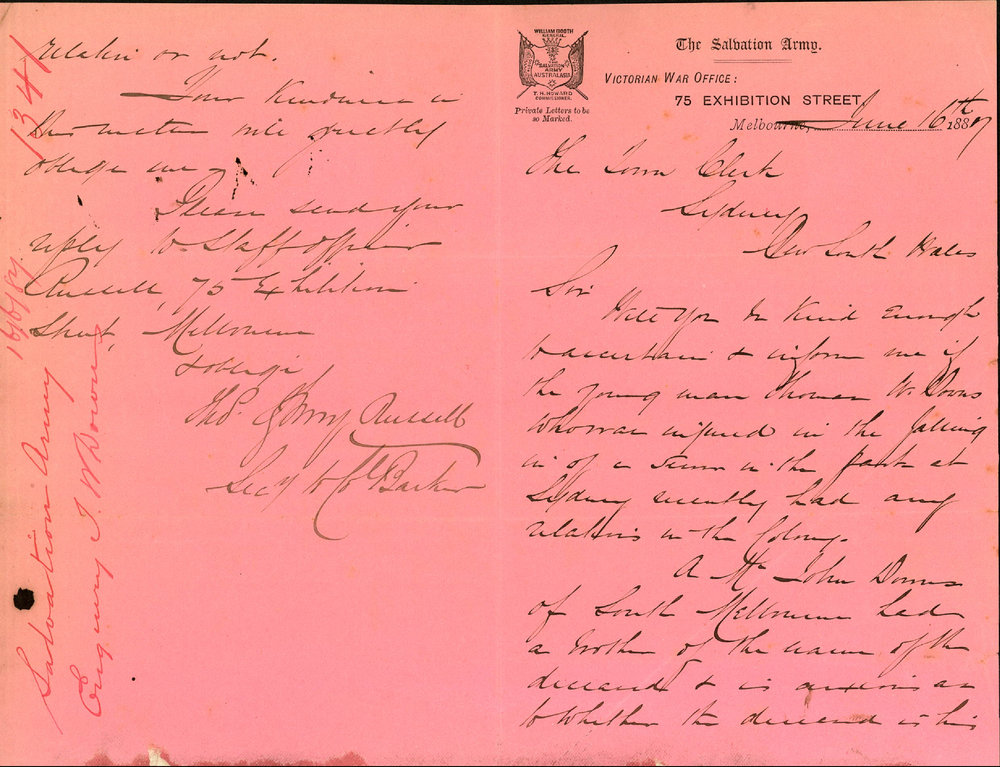 WILLIAM BOOTH
GENERAL
THE
SALVATION
ARMY
AUSTRALASIA
T. H. HOWARD
COMMISSIONER.
Private Letters to be
so Marked.
The Salvation Army.
VICTORIAN WAR OFFICE:
75 EXHIBITION STREET
Melbourne, June 16th 1887
The Town Clerk
Sydney
New South Wales
Sir
Will you be kind enough
to ascertain & inform me if
the young man Thomas W. Downs
who was injured in the falling
in of a sewer in the park at
Sydney recently had any
relations in the Colony.
A Mr John Downs
of South Melbourne had
a brother of the name of the
deceased & is anxious as
to whether the deceased is his
relation or not.
Your kindness in
this matter will greatly
oblige me
Please send your
reply to Staff Officer
Russell, 75 Exhibition
Street, Melbourne
& oblige
Thos. Russell
Secy to Barker
1341
16/6/87
Salvation Army
Enquiry T. W Down